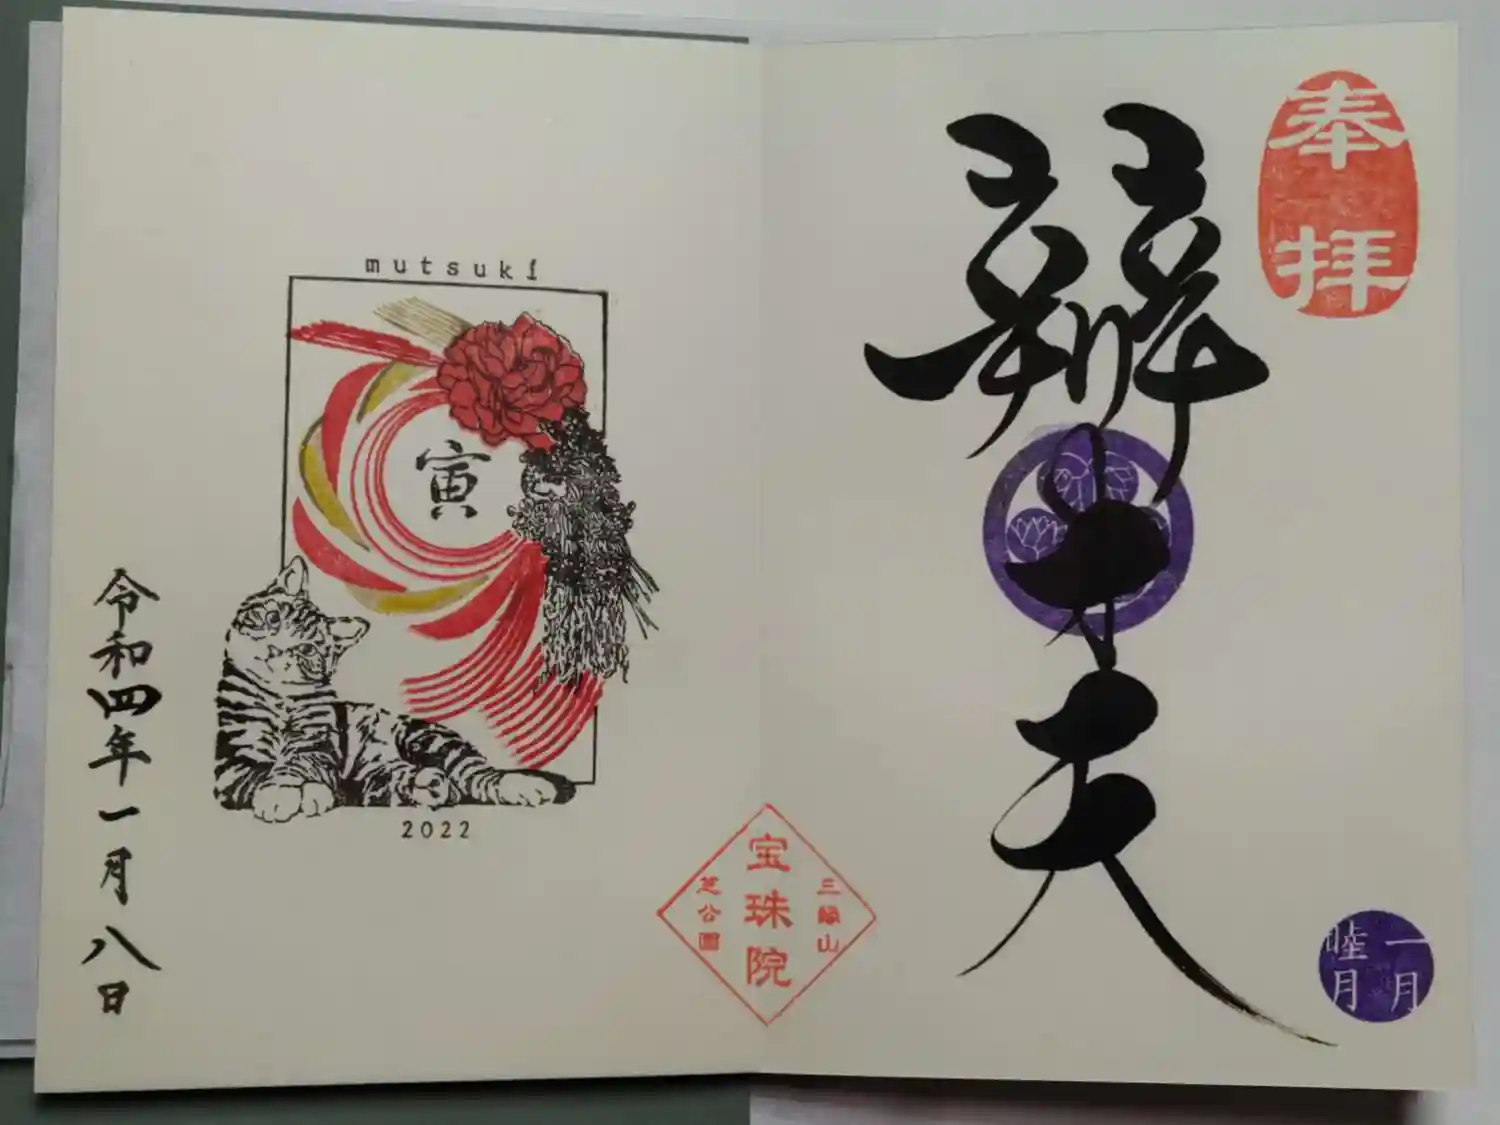 奉拝
辨才天
一月
睦月
三縁山
宝珠院
芝公園
mutsuki
寅
2022
令和四年一月八日